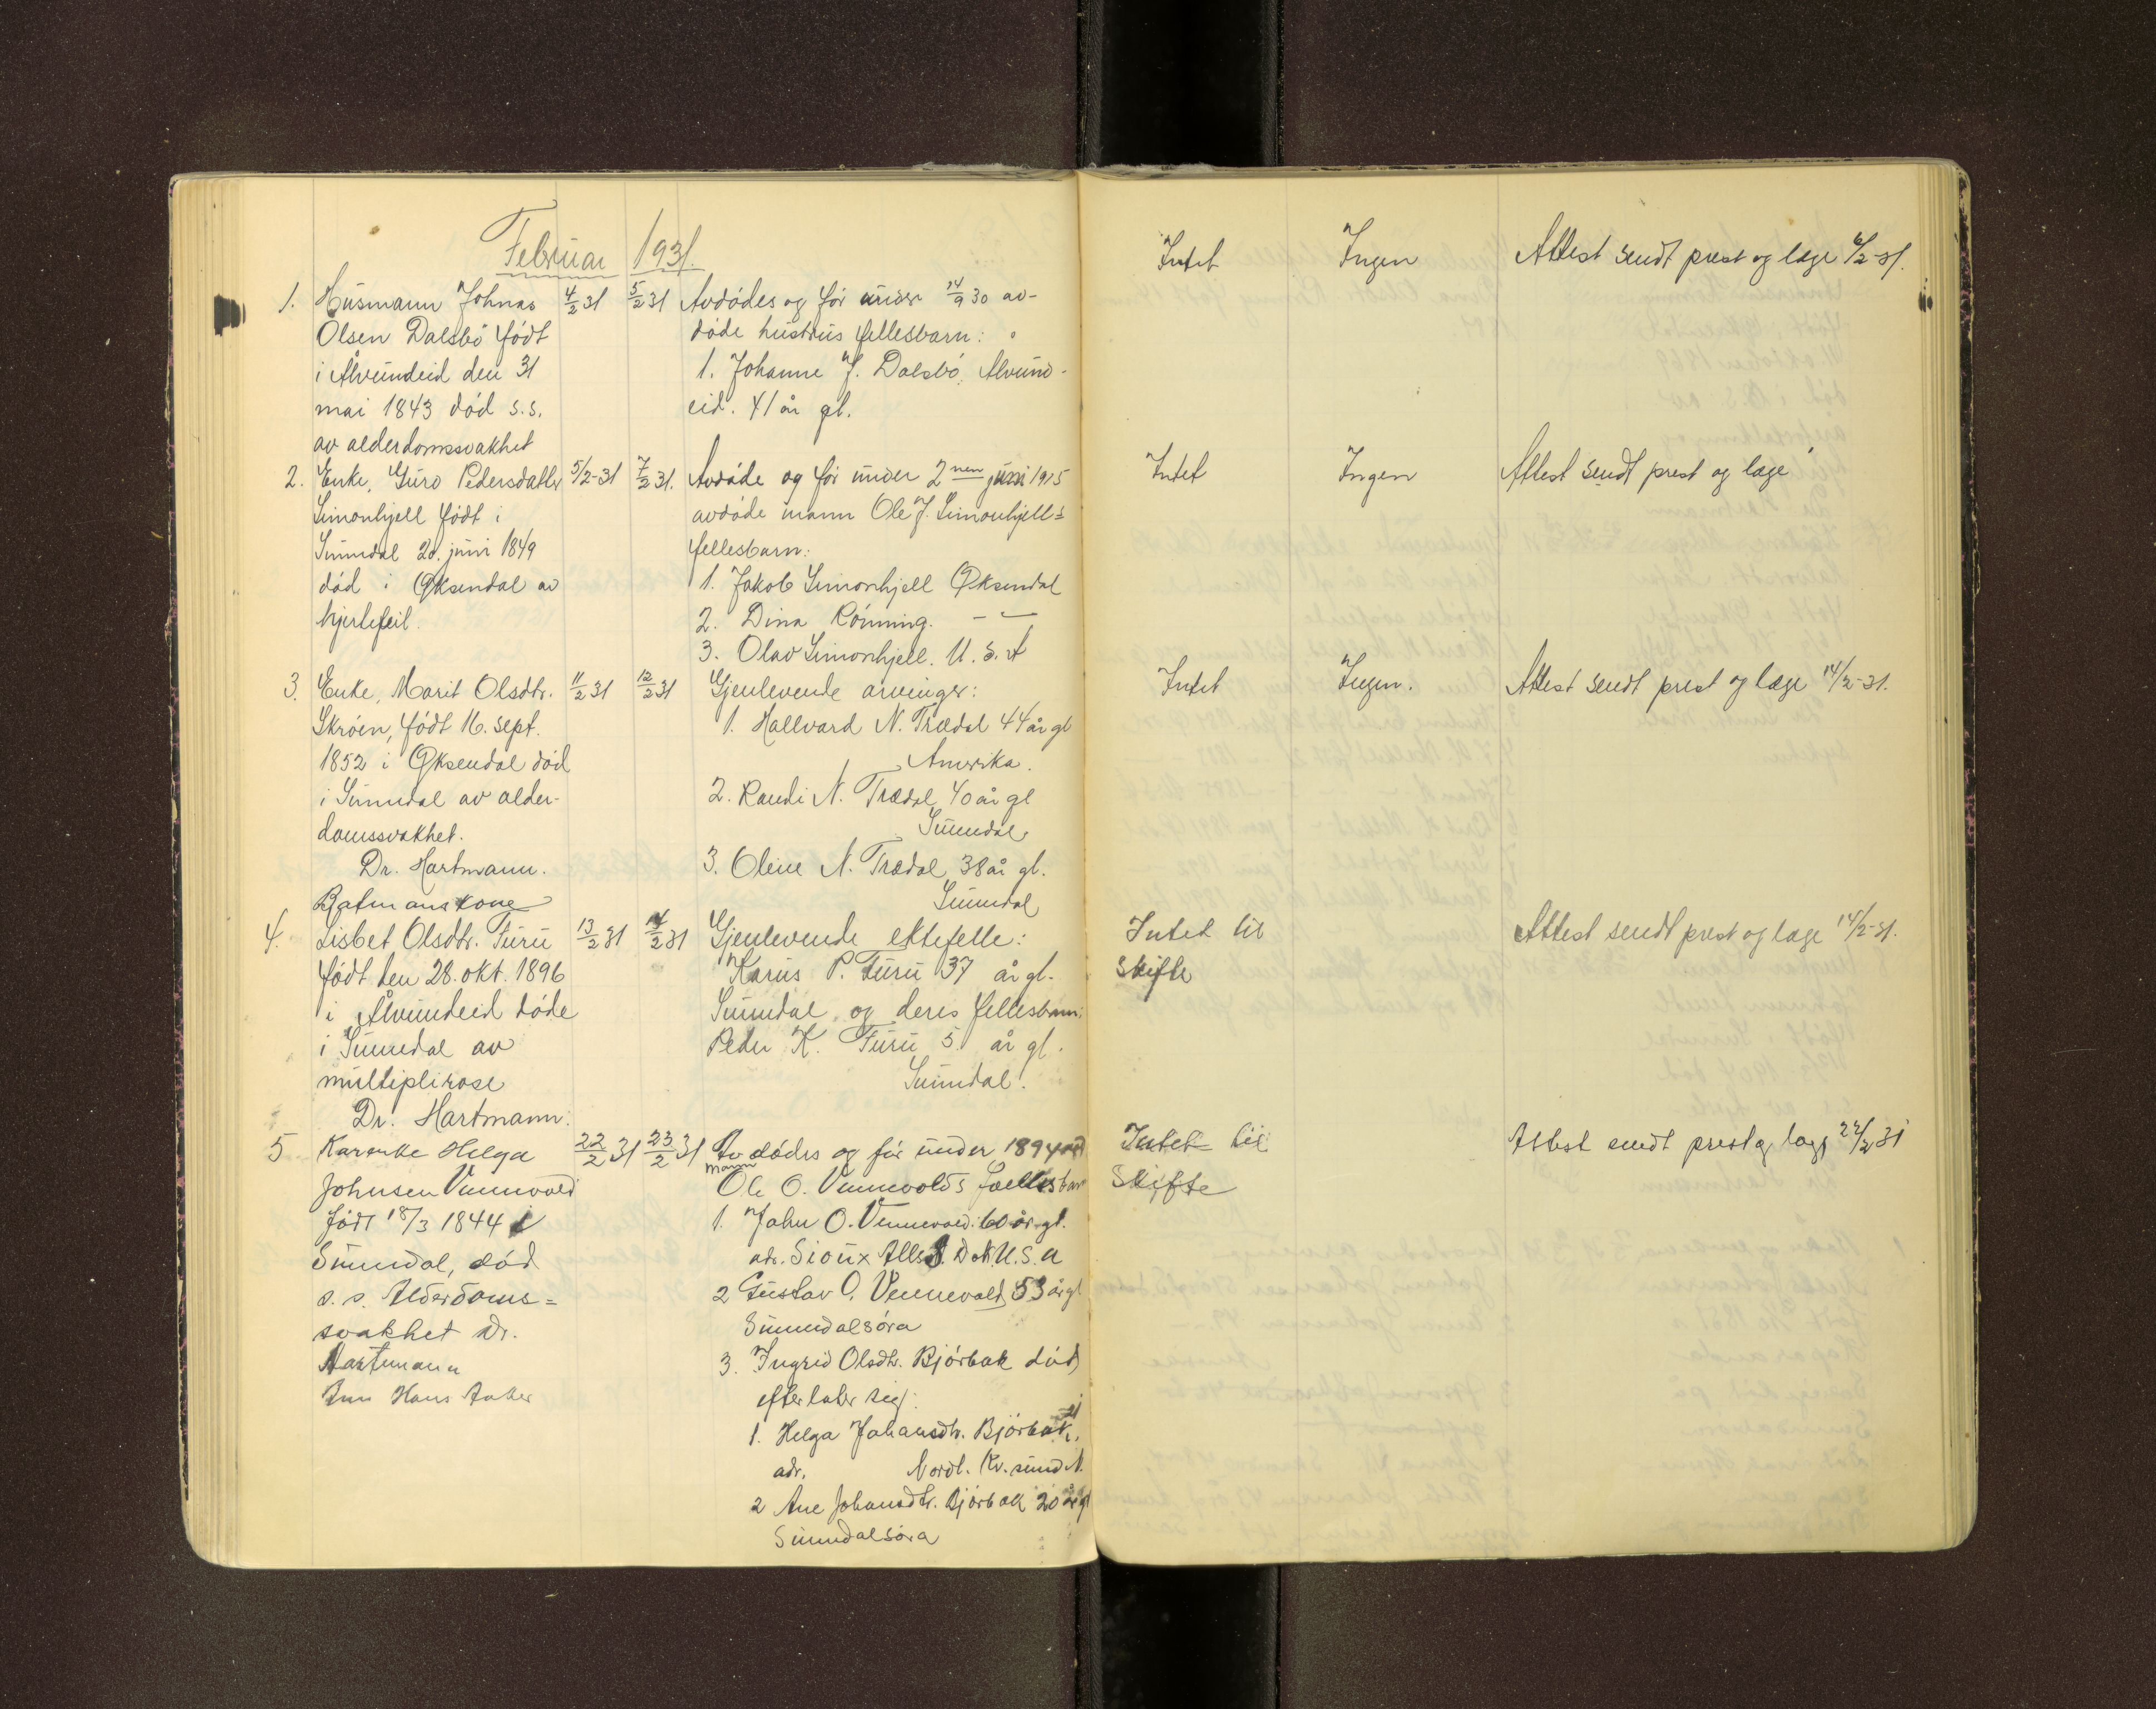 Februar 1931.
1. Husmann Johnas 4/2 31 5/2 31 Avdødes og før under 14/9 30 av- Intet Ingen Attest sendt prest og læge 6/2-31.
Olsen Dalsbø født døde hustrus fellesbarn:
i Ålvundeid den 31 1. Johanne J. Dalsbø, Ålvund-
mai 1843 død s.s. eid. 41 år gl.
av alderdomssvakhet
2. Enke, Guro Pedersdatter 5/2-31 7/2 31. Avdøde og før under 2nen juni 1915 Intet Ingen Attest sendt prest og læge
Simonhjell født i avdøde mann Ole J. Simonhjells
Sunndal 20. juni 1849 fellesbarn:
død i Øksendal av 1. Jakob Simonhjell Øksendal
hjertefeil. 2. Dina Rønning. - -
3. Olav Simonhjell. U. S. A
3. Enke, Marit Olsdtr. 11/2 31 12/2 31 Gjenlevende arvinger: Intet Ingen. Attest sendt prest og læge 14/2-31.
Skrøen, født 16. sept. 1. Hallvard N. Trædal 44 år gl
1852 i Øksendal død Amerika.
i Sunndal av alder- 2. Randi N. Trædal 40 år gl
domssvakhet. Sunndal
Dr. Hartmann. 3. Oline N. Trædal 38 år gl.
kone Sunndal
4. Lisbet Olsdtr. Furu 13/2 31 14/2 31 Gjenlevende ektefelle: Intet til Attest sendt prest og læge 14/2-31.
født den 28. okt. 1896 Karus P. Furu 37 år gl. Skifte
i Ålvundeid døde Sunndal og deres fellesbarn:
i Sunndal av Peder K. Furu 5 år gl.
multiplirose Sunndal.
Dr. Hartmann.
5 Karenke Helga 22/2 31 23/2 31 Avdødes og før under 1894 Intet til Attest sendt prest og læge 22/2 31
Johnsen Vennevold mann Ole O. Vennevolds fællesbarn Skifte
født 18/3 1844 i 1. John O. Vennevold 60 år gl.
Sunndal, død adr. Sioux S. Dak. U.S.A
s.s. Alderdoms= 2 Gustav O. Vennevold 53 år gl
svakhet Dr. Sunndalsøra
Hartmann 3. Ingrid Olsdtr. Bjørbak død
Hans efterlater sig:
1. Helga Johansdtr. Bjørbak
adr. Nordl. Kr.sund N.
2 Ane Johansdtr. Bjørbak 20 år gl
Sunndalsøra